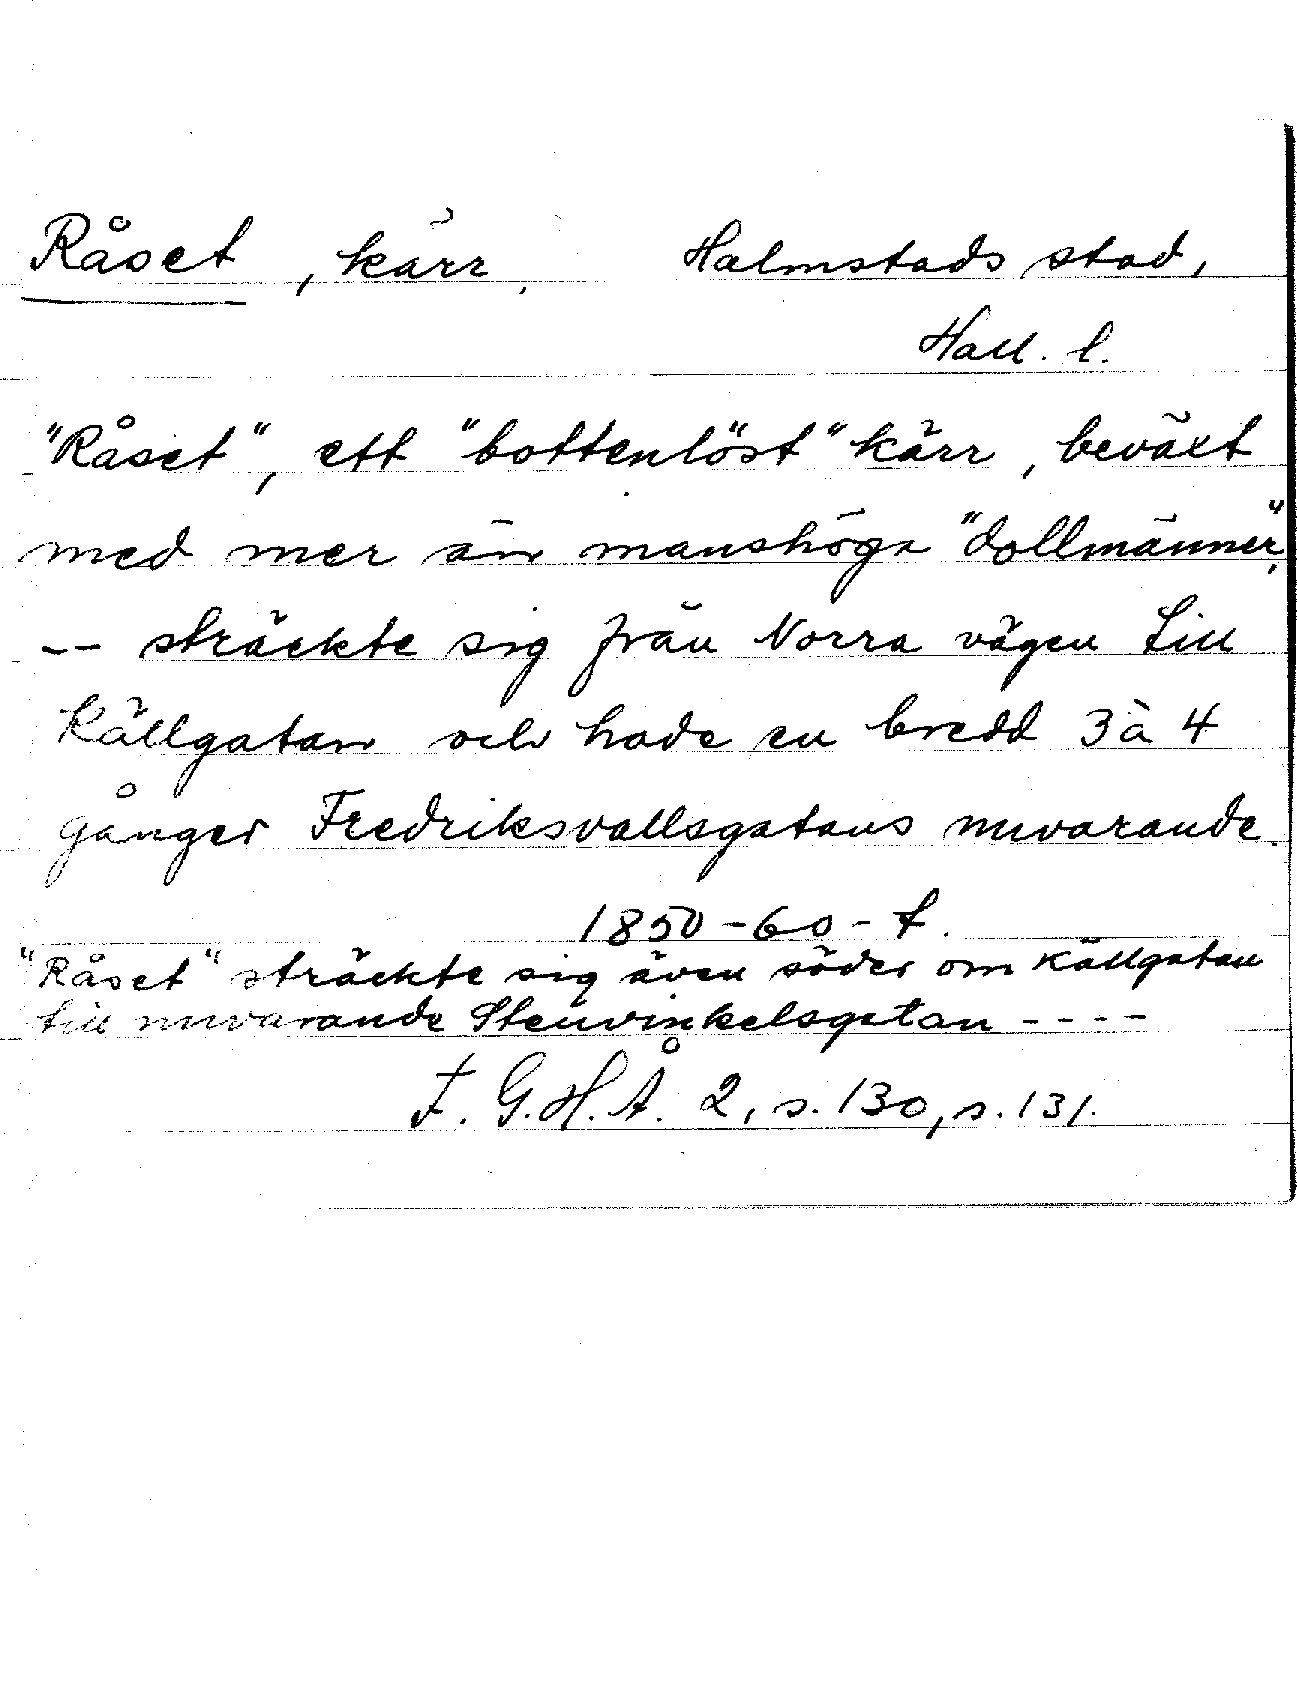 Råset, kärr, Halmstads stad,
Hall. l.
"Råset", ett "bottenlöst" kärr, beväxt
med mer än manshöga "dollmänner",
-- sträckte sig från Norra vägen till
Källgatan och hade en bredd 3 à 4
gånger Fredriksvallsgatans nuvarande.
1850-60-t.
"Råset" sträckte sig även söder om Källgatan
till nuvarande Stenvinkelsgatan ----
F. G. H. Å. 2, s. 130, s. 131.